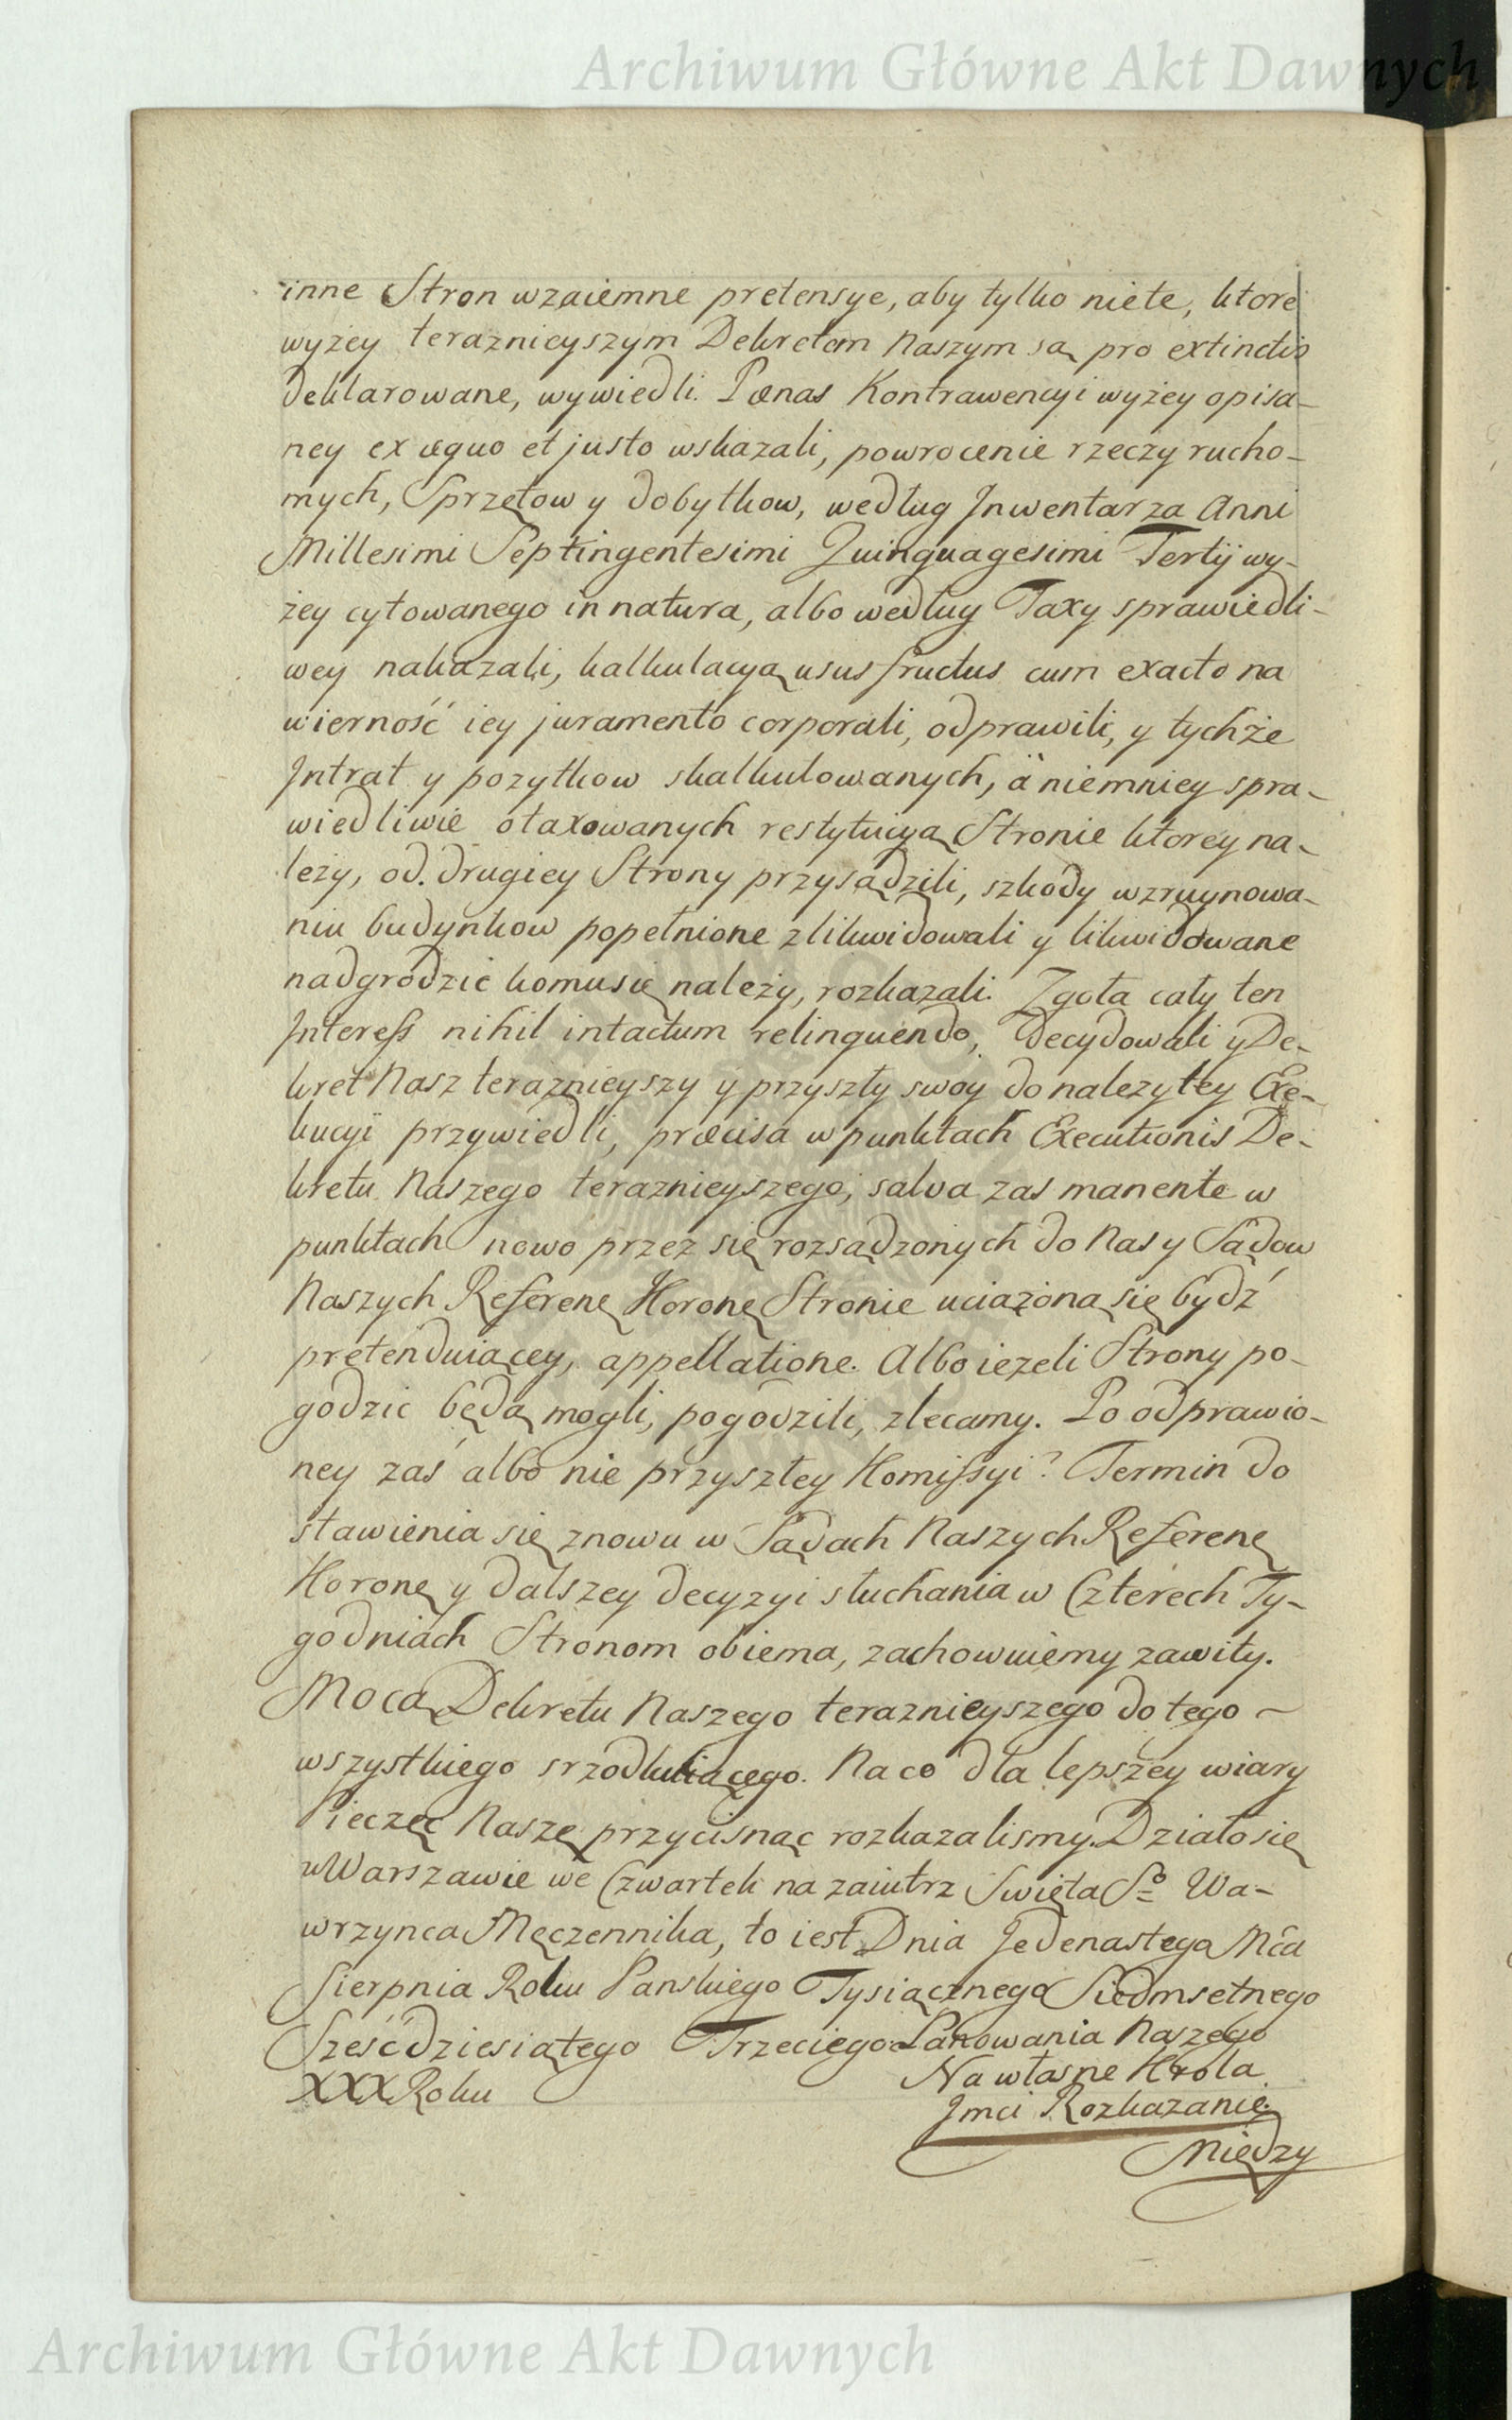 Archiwum Główne Akt Dawnych
inne Stron wzaiemne pretensye, aby tylko niete, ktore
wyzey teraznieyszym Dekretem Naszym są pro extinctis
deklarowane, wywiedli. Pœnas Kontrawencyi wyżey opisa-
ney ex æquo et justo wskazali, powrocenie rzeczy rucho-
mych, Sprzętow y dobytkow, według Jnwentarza Anni
Millesimi Septingentesimi Quinquagesimi Tertij wy-
żey cytowanego in natura, albo według Taxy sprawiedli-
wey nakazali, kalkulacyą usus fructus cum exacto na
wierność iey juramento corporali, odprawili, y tychże
Jntrat y pozytkow skalkulowanych, á niemniey spra-
wiedliwie otaxowanych restytucyą Stronie ktorey na-
leży, od drugiey Strony przysądzili, szkody wzruynowa-
niu budynkow popełnione zlikwidowali y likwidowane
nadgrodzic komu się należy, rozkazali. Zgoła cały ten
Jnteress nihil intactum relinquendo, decydowali y De-
kret Nasz teraznieyszy y przyszły swoy do nalezytey Exe-
kucyi przywiedli, præcisa w punktach Executionis De-
kretu Naszego teraznieyszego, salva zas manente w
punktach nowo przez się rozsądzonych do Nas y Sądow
Naszych Referenę Koronę Stronie uciążoną się bydź
pretenduiącey, appellatione. Albo iezeli Strony po-
godzic będą mogli, pogodzili, zlecamy. Po odprawio-
ney zaś albo nie przyszłey Komissyi? Termin do
stawienia się znowu w Sądach Naszych Referenę
Koronę y dalszey decyzyi słuchania w Czterech Ty-
godniach Stronom obiema, zachowuiemy zawity.
Mocą Dekretu Naszego teraznieyszego do tego
wszystkiego srzodkuiącego. Na co dla lepszey wiary
Pieczęć Naszę przycisnąc rozkazalismy. Działo się
w Warszawie we Czwartek na zaiutrz Swięta So Wa-
wrzynca Męczennika, to iest Dnia Jedenastego Mca
Sierpnia Roku Panskiego Tysiącznego Siedmsetnego
Sześćdziesiątego Trzeciego Panowania Naszego
XXX Roku
Na własne Krola
Jmci Rozkazanie.
Między
Archiwum Główne Akt Dawnych